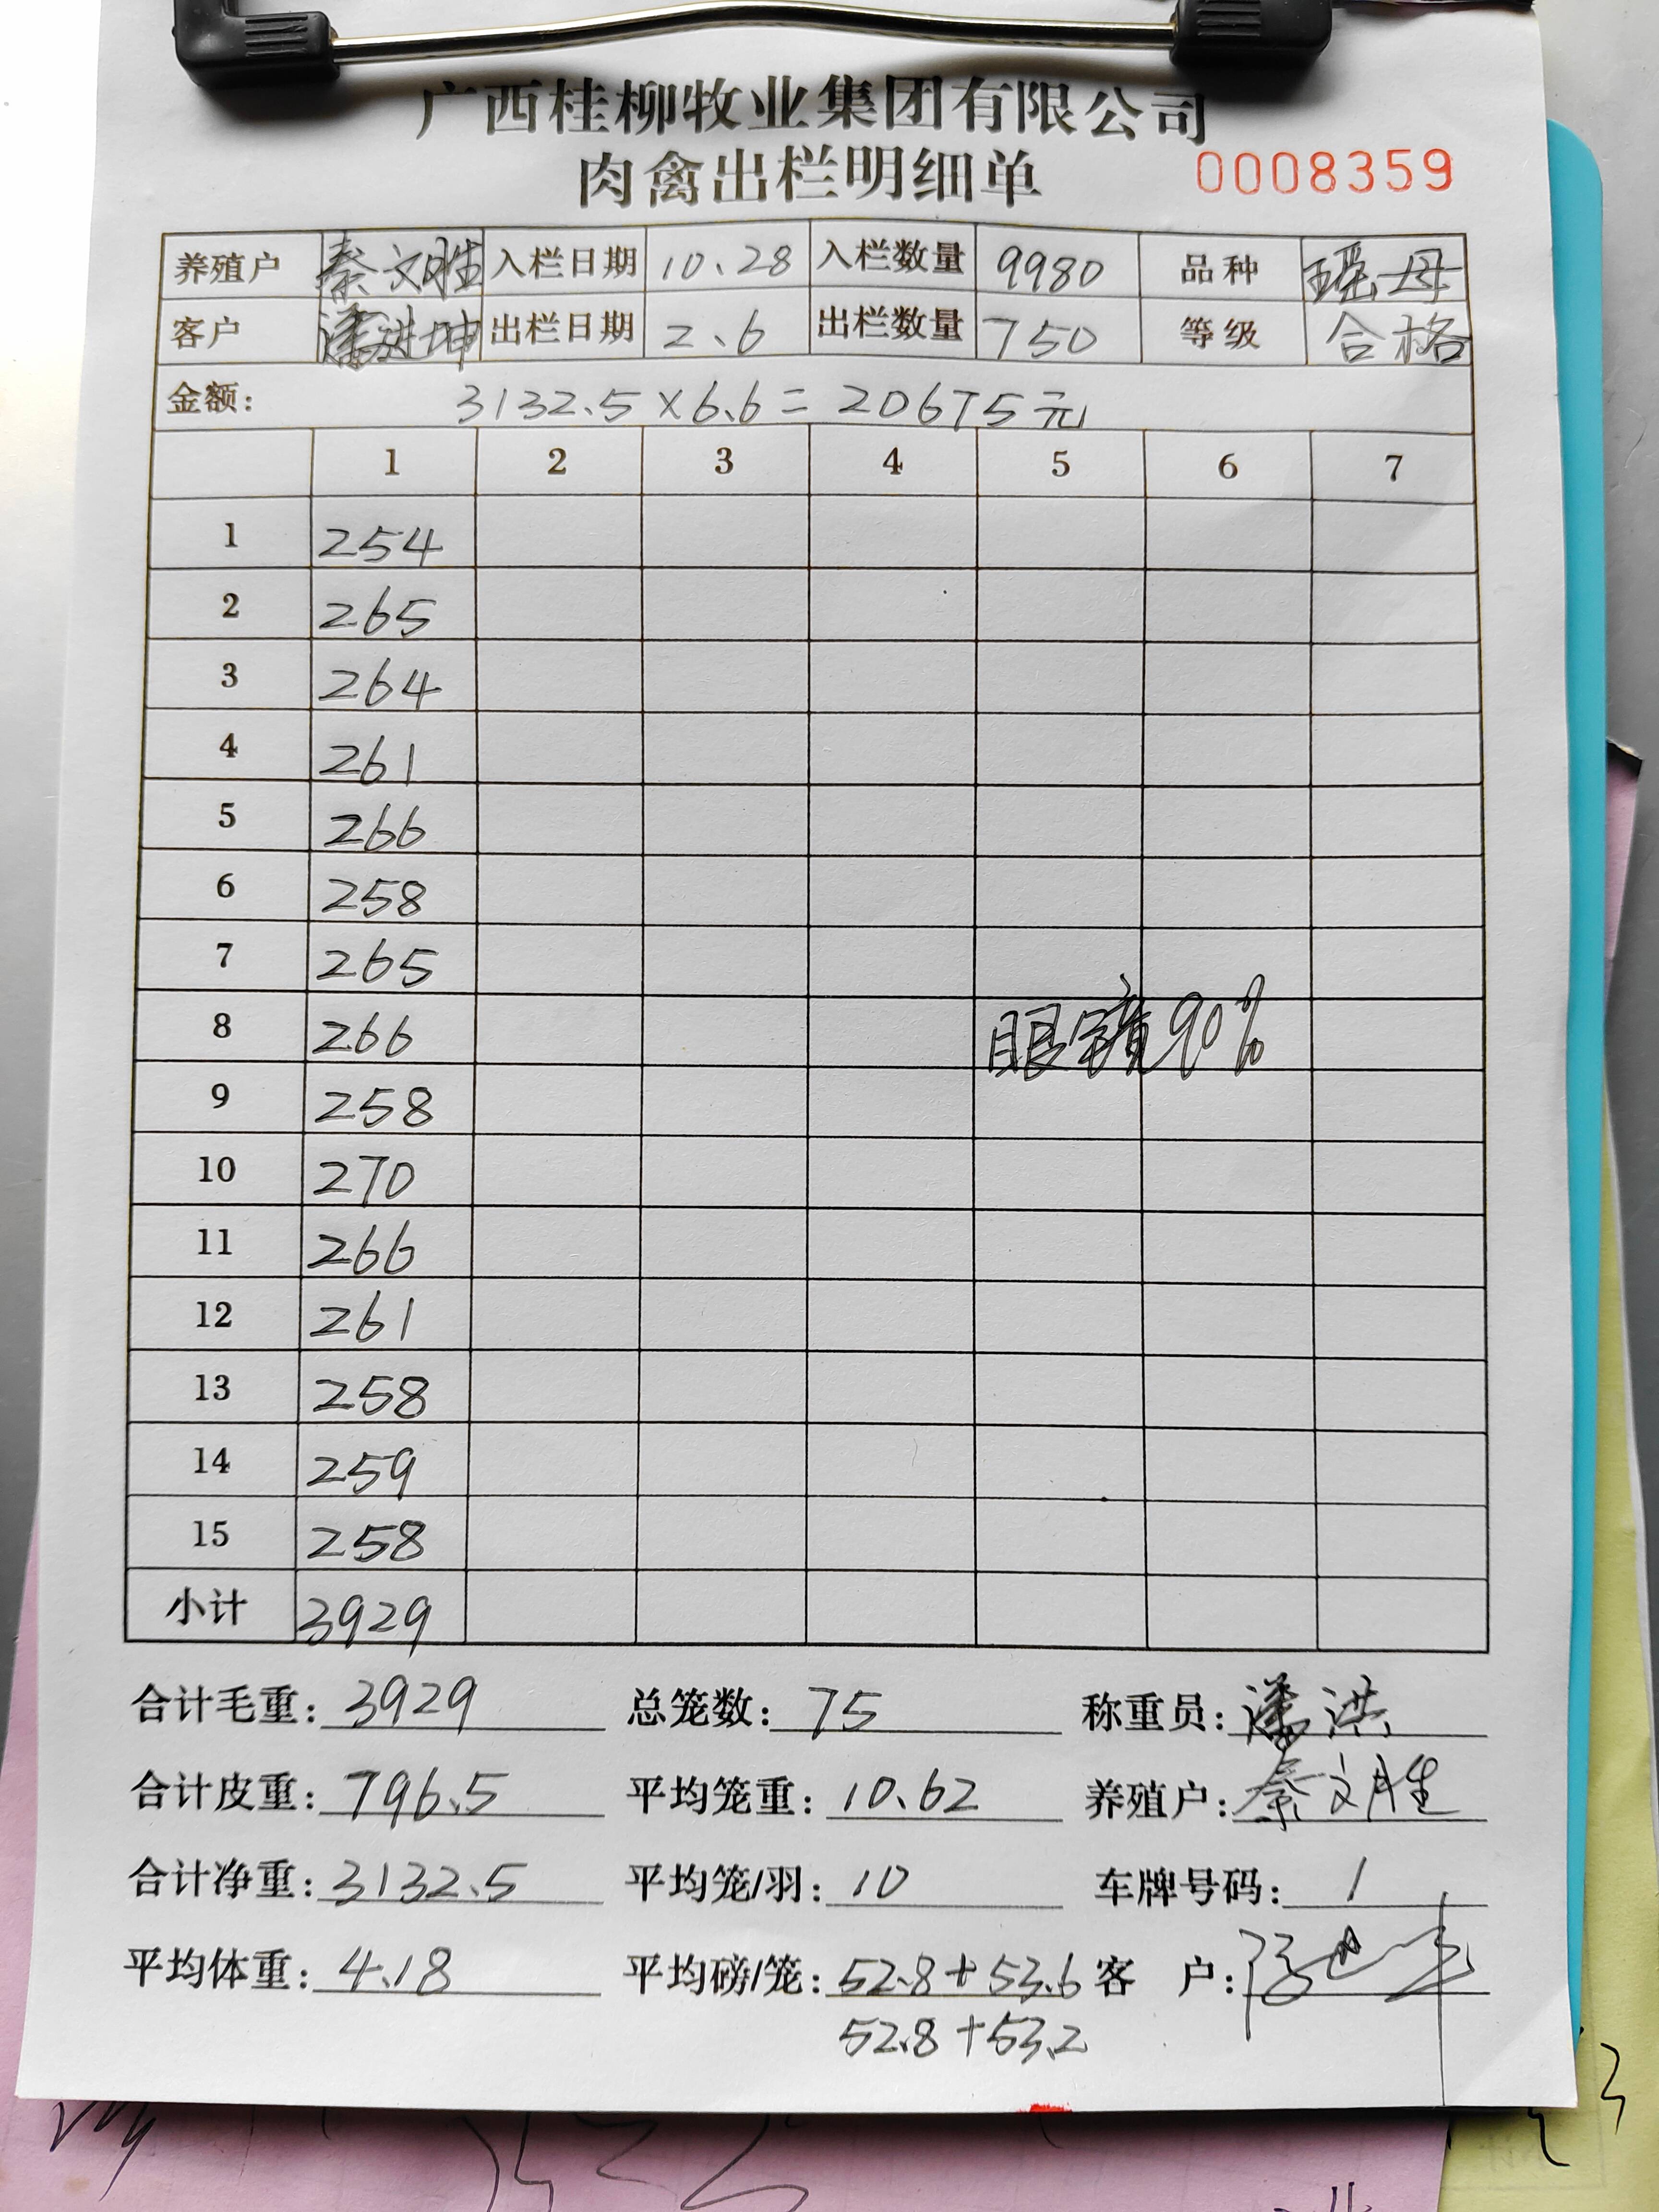 广西桂柳牧业集团有限公司
肉禽出栏明细单 0008359
养殖户 秦文胜 入栏日期 10.28 入栏数量 9980 品种 瑶母
客户 潘进坤 出栏日期 2.6 出栏数量 750 等级 合格
金额: 3132.5×6.6=20675元
1 2 3 4 5 6 7
1 254
2 265
3 264
4 261
5 266
6 258
7 265
8 266 眼 90%
9 258
10 270
11 266
12 261
13 258
14 259
15 258
小计 3929
合计毛重: 3929 总笼数: 75 称重员: 潘洪
合计皮重: 796.5 平均笼重: 10.62 养殖户: 秦文胜
合计净重: 3132.5 平均笼/羽: 10 车牌号码: 1
平均体重: 4.18 平均磅/笼: 52.8+53.6 客 户:
52.8+53.2